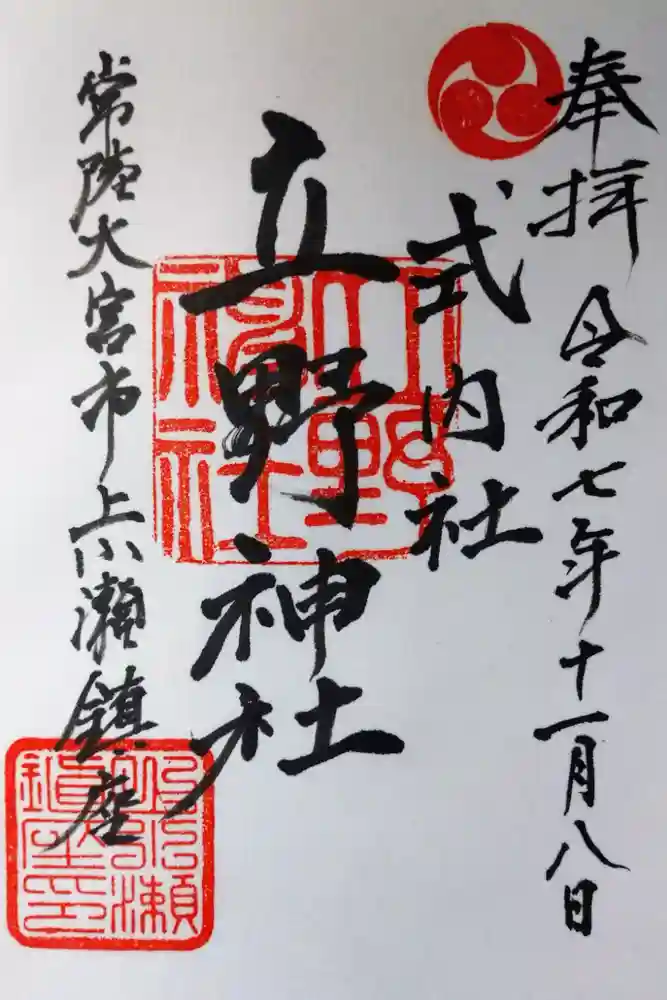 奉拝 令和七年十一月八日
式内社
立野神社
常陸大宮市上小瀬鎮座
立野神社